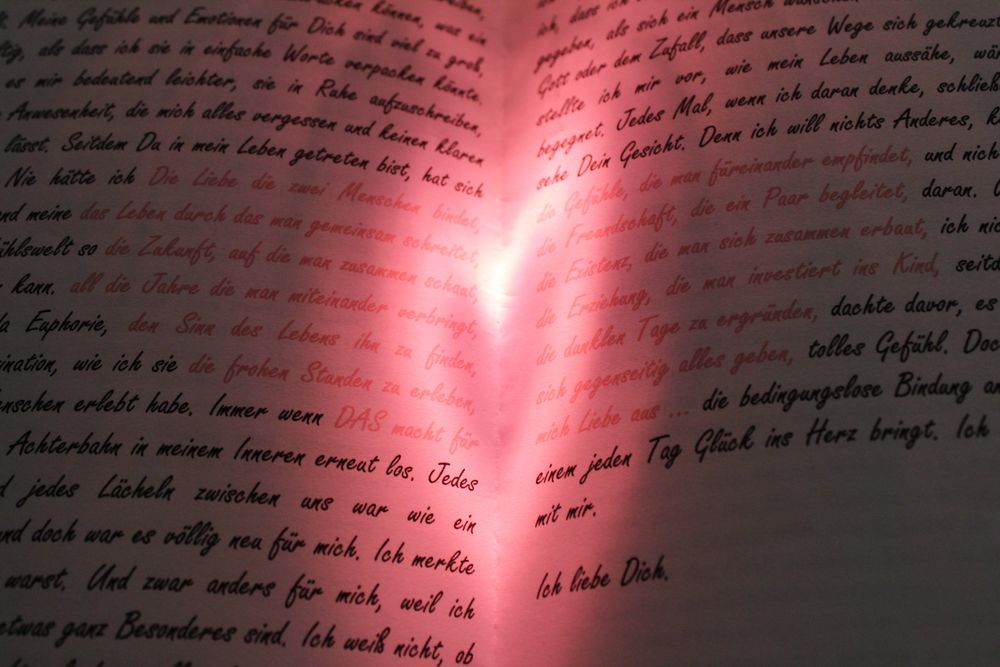 können, was ein
Meine Gefühle und Emotionen für Dich sind viel zu groß,
als dass ich sie in einfache Worte verpacken könnte.
es mir bedeutend leichter, sie in Ruhe aufzuschreiben,
Anwesenheit, die mich alles vergessen und keinen klaren
lässt. Seitdem Du in mein Leben getreten bist, hat sich
Nie hätte ich Die Liebe die zwei Menschen bindet,
meine das Leben durch das man gemeinsam schreitet,
so die Zukunft, auf die man zusammen schaut,
kann. all die Jahre die man miteinander verbringt,
Euphorie, den Sinn des Lebens ihn zu finden,
wie ich sie die frohen Stunden zu erleben,
erlebt habe. Immer wenn DAS macht für
Achterbahn in meinem Inneren erneut los. Jedes
jedes Lächeln zwischen uns war wie ein
und doch war es völlig neu für mich. Ich merkte
warst. Und zwar anders für mich, weil ich
etwas ganz Besonderes sind. Ich weiß nicht, ob
ich, dass ich
gegeben, als sich ein Mensch
Gott oder dem Zufall, dass unsere Wege sich gekreuzt
stellte ich mir vor, wie mein Leben aussähe,
begegnet. Jedes Mal, wenn ich daran denke,
sehe Dein Gesicht. Denn ich will nichts Anderes,
die Gefühle, die man füreinander empfindet, und
die Freundschaft, die ein Paar begleitet, daran.
die Existenz, die man sich zusammen erbaut, ich
die Erziehung, die man investiert ins Kind,
die dunklen Tage zu ergründen, dachte davor, es
sich gegenseitig alles geben, tolles Gefühl.
mich Liebe aus ... die bedingungslose Bindung
einem jeden Tag Glück ins Herz bringt. Ich
mit mir.
Ich liebe Dich.